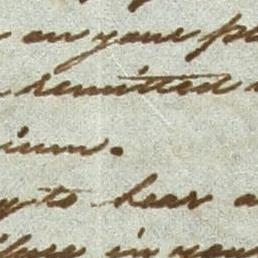 on your pl
remitted
ium.
y to hear a
in your